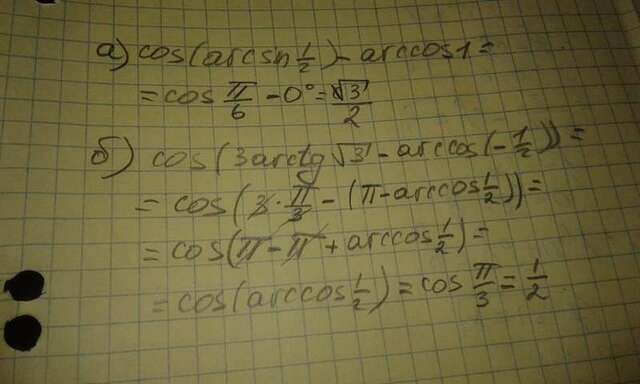 а) cos(arcsin 1/2) - arccos 1 =
= cos π/6 - 0° = √3/2
б) cos(3arctg √3 - arccos(-1/2)) =
= cos(3·π/3 - (π - arccos 1/2)) =
= cos(π - π + arccos 1/2) =
= cos(arccos 1/2) = cos π/3 = 1/2